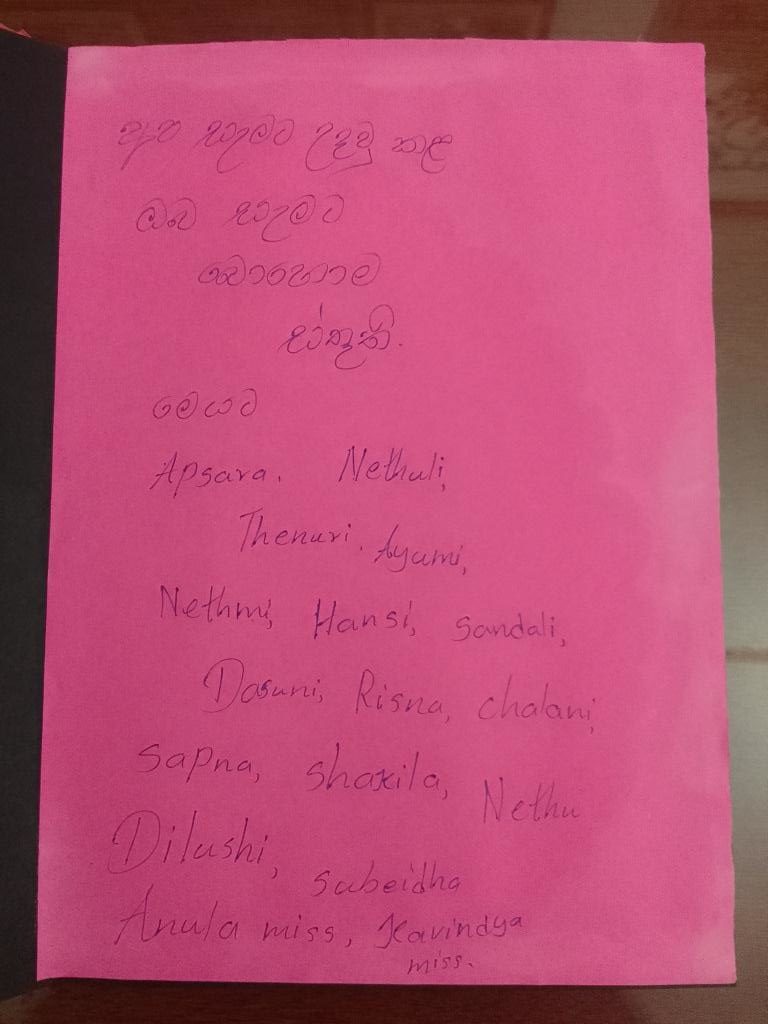 අප සැමට උදවු කළ
ඔබ සැමට
බොහොම
ස්තූති.
මෙයට
Apsara. Nethuli,
Thenuri. Ayumi,
Nethmi, Hansi, Sandali,
Dasuni, Risna, chalani,
Sapna, shakila, Nethu
Dilushi, Sabeidha
Anula miss, Kavindya
miss.